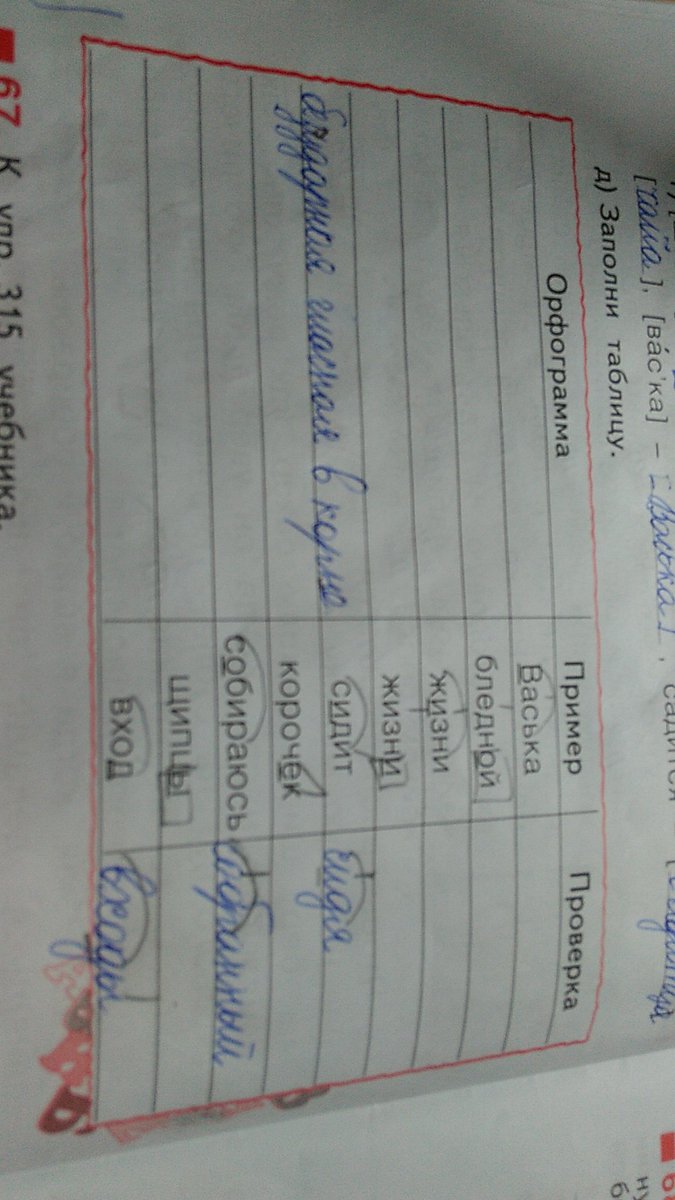 [чайа], [ва́с'ка] – [Васька], садится
д) Заполни таблицу.
Орфограмма Пример Проверка
Васька
бледной
жизни
жизни
безударная гласная в корне сидит сидя
корочек
собираюсь собранный
щипцы
вход входы
67 К упр. 315 учебника.